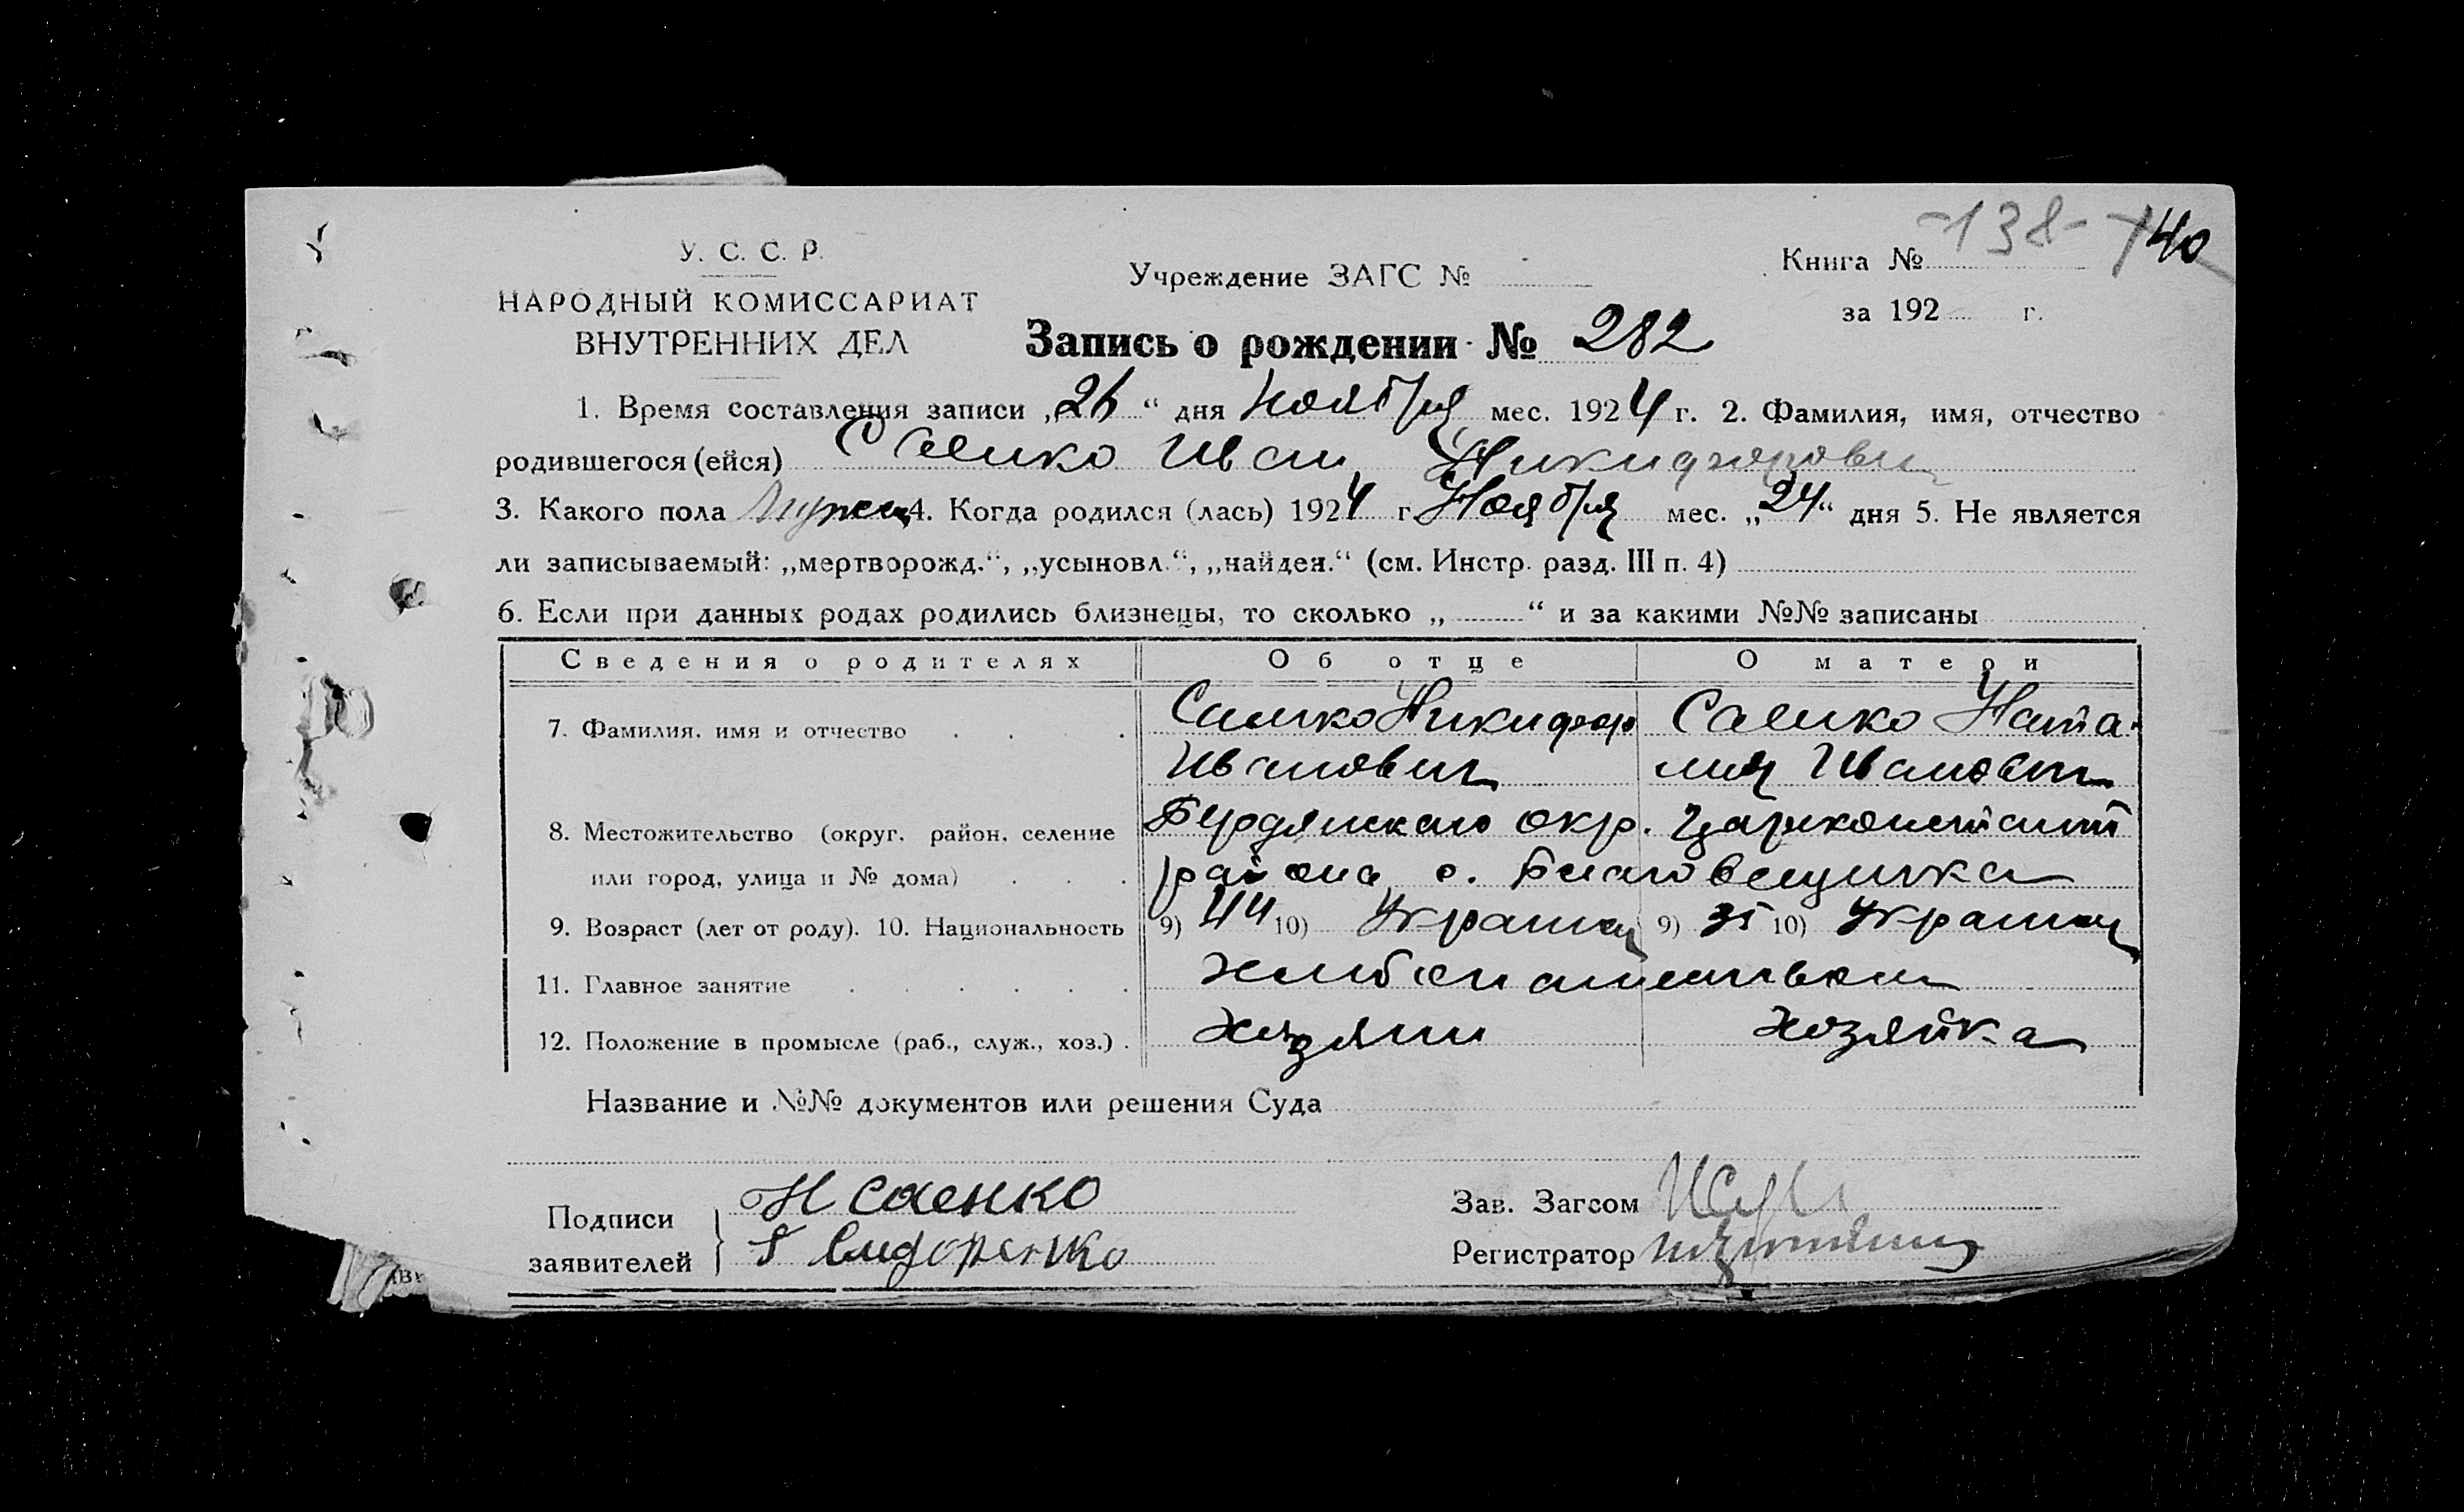 -138- 140
У. С. С. Р.
НАРОДНЫЙ КОМИССАРИАТ
ВНУТРЕННИХ ДЕЛ
Учреждение ЗАГС №
Книга №
за 192 г.
Запись о рождении № 282
1. Время составления записи „26“ дня Ноября мес. 1924 г. 2. Фамилия, имя, отчество
родившегося (ейся) Саенко Иван Никифорович
3. Какого пола Мужск 4. Когда родился (лась) 1924 г. Ноября мес. „24“ дня 5. Не является
ли записываемый: „мертворожд.“, „усыновл.“, „найден.“ (см. Инстр. разд. III п. 4)
6. Если при данных родах родились близнецы, то сколько „ “ и за какими №№ записаны
Сведения о родителях Об отце О матери
7. Фамилия, имя и отчество Саенко Никифор Саенко Ната-
Иванович лия Ивановн
8. Местожительство (округ, район, селение Бердянского окр. Цареконстант
или город, улица и № дома) района с. Благовещенка
9. Возраст (лет от роду). 10. Национальность 9) 44 10) Украинец 9) 35 10) Украинц
11. Главное занятие хлебопашеством
12. Положение в промысле (раб., служ., хоз.) хозяин хозяйка
Название и №№ документов или решения Суда
Подписи
заявителей
Н Саенко
Сидоренко
Зав. Загсом
Регистратор